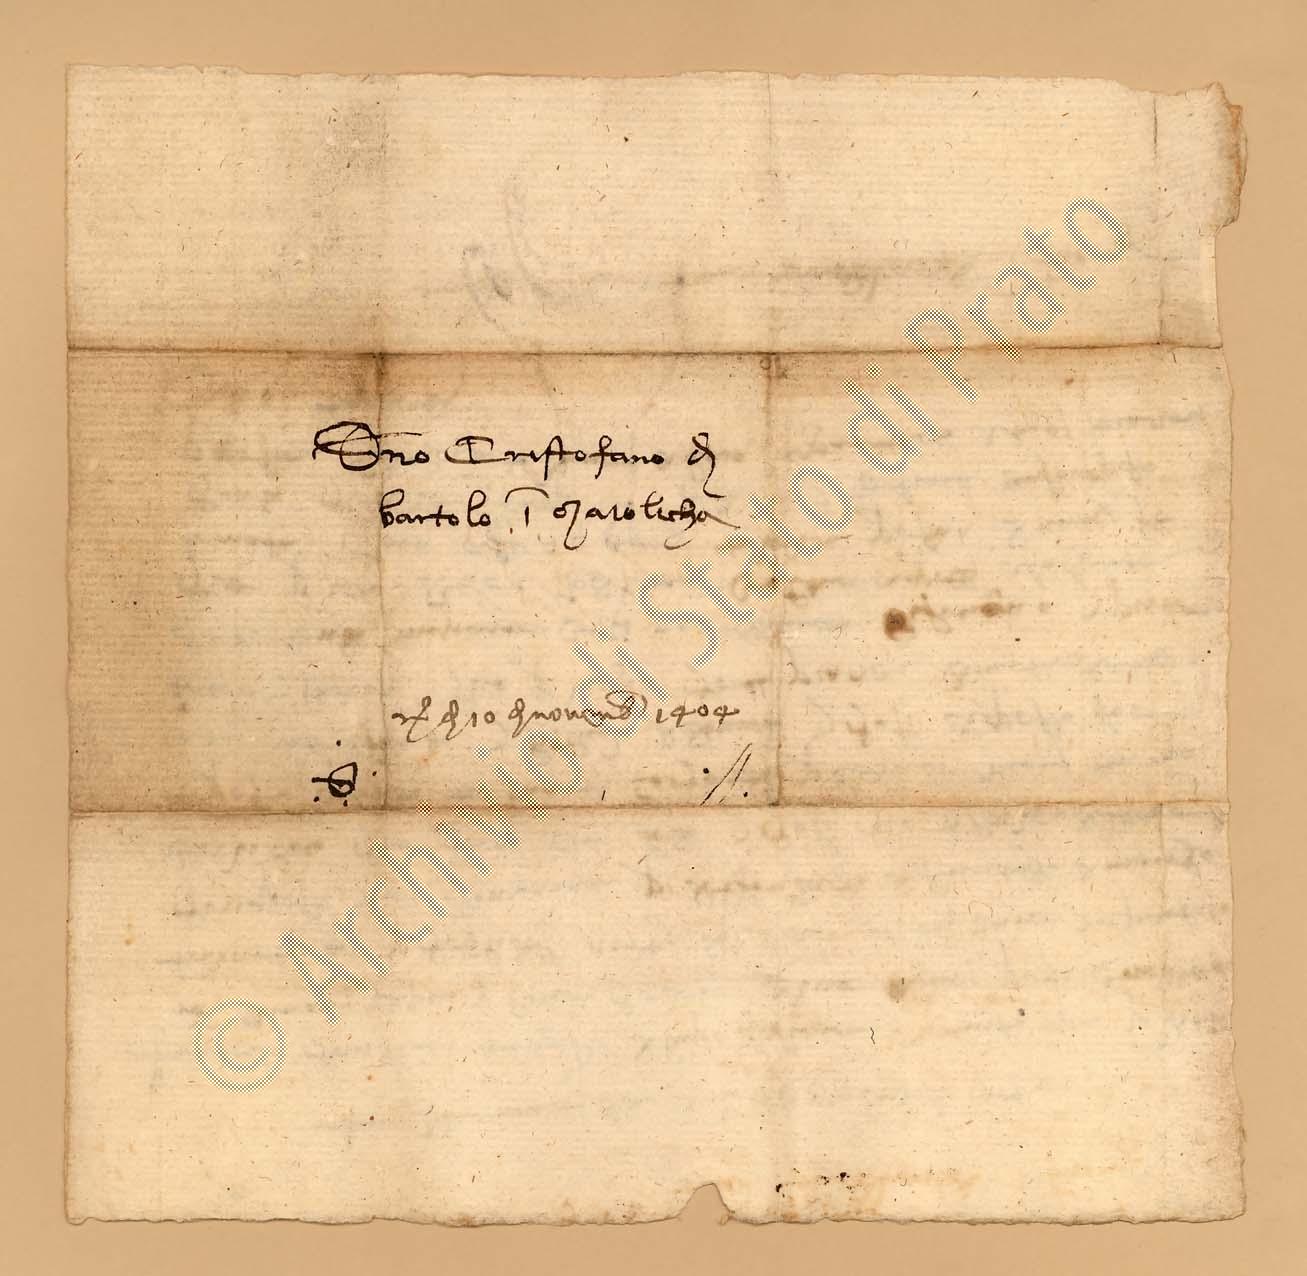 Sno Cristofano di
bartolo i Maiolicha
R di 10 di novembr 1404
© Archivio di Stato di Prato